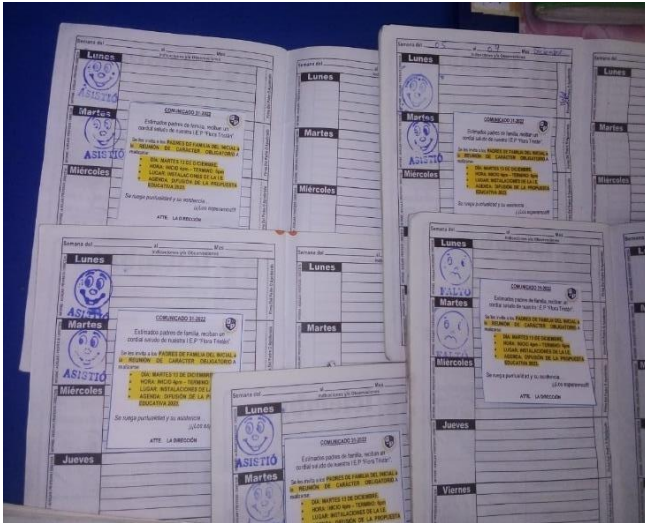 Semana del al Mes
Indicaciones y/o Observaciones
Lunes
ASISTIÓ
Martes
ASISTIÓ
Miércoles
COMUNICADO 31-2022
Estimados padres de familia, reciban un
cordial saludo de nuestra I.E.P "Flora Tristán".
Se les invita a los PADRES DE FAMILIA DEL INICIAL A
la REUNIÓN DE CARÁCTER OBLIGATORIO a
realizarse:
• DÍA: MARTES 13 DE DICIEMBRE.
• HORA: INICIO 4pm – TERMINO: 6pm
• LUGAR: INSTALACIONES DE LA I.E.
• AGENDA: DIFUSIÓN DE LA PROPUESTA
EDUCATIVA 2023.
Se ruega puntualidad y su asistencia.
¡¡Los esperamos!!!
ATTE. LA DIRECCIÓN
Semana del
Lunes
Martes
Miércoles
Semana del 05 al 09 Mes Diciembre
Indicaciones y/o Observaciones
Lunes
Martes
ASISTIÓ
Miércoles
COMUNICADO 31-2022
Estimados padres de familia, reciban un
cordial saludo de nuestra I.E.P "Flora Tristán".
Se les invita a los PADRES DE FAMILIA DEL INICIAL A
la REUNIÓN DE CARÁCTER OBLIGATORIO a
realizarse:
• DÍA: MARTES 13 DE DICIEMBRE.
• HORA: INICIO 4pm – TERMINO: 6pm
• LUGAR: INSTALACIONES DE LA I.E.
• AGENDA: DIFUSIÓN DE LA PROPUESTA
EDUCATIVA 2023.
Se ruega puntualidad y su asistencia.
¡¡Los esperamos!!!
ATTE. LA DIRECCIÓN
Semana del
Lunes
Martes
Miércoles
Semana del al Mes
Indicaciones y/o Observaciones
Lunes
ASISTIÓ
Martes
ASISTIÓ
Miércoles
Jueves
COMUNICADO 31-2022
Estimados padres de familia, reciban un
cordial saludo de nuestra I.E.P "Flora Tristán".
Se les invita a los PADRES DE FAMILIA DEL INICIAL A
la REUNIÓN DE CARÁCTER OBLIGATORIO a
realizarse:
• DÍA: MARTES 13 DE DICIEMBRE.
• HORA: INICIO 4pm – TERMINO
• LUGAR: INSTALACIONES DE LA
• AGENDA: DIFUSIÓN DE LA P
EDUCATIVA 2023.
Se ruega puntualidad y su asistencia.
¡¡Los es
ATTE. LA DIRECCIÓN
Semana del
Lunes
Martes
Semana del al Mes
Indicaciones y/o Observaciones
Lunes
FALTÓ
Martes
FALTÓ
Miércoles
Jueves
Viernes
COMUNICADO 31-2022
Estimados padres de familia, reciban un
cordial saludo de nuestra I.E.P "Flora Tristán".
Se les invita a los PADRES DE FAMILIA DEL INICIAL A
la REUNIÓN DE CARÁCTER OBLIGATORIO a
realizarse:
• DÍA: MARTES 13 DE DICIEMBRE.
• HORA: INICIO 4pm – TERMINO: 6pm
• LUGAR: INSTALACIONES DE LA I.E.
• AGENDA: DIFUSIÓN DE LA PROPUESTA
EDUCATIVA 2023.
Se ruega puntualidad y su asistencia.
¡¡Los esperamos!!!
ATTE. LA DIRECCIÓN
Semana del al Mes
Indicaciones y/o Observaciones
Lunes
ASISTIÓ
Martes
COMUNICADO 31-2022
Estimados padres de familia, reciban un
cordial saludo de nuestra I.E.P "Flora Tristán".
Se les invita a los PADRES DE FAMILIA DEL INICIAL A
la REUNIÓN DE CARÁCTER OBLIGATORIO a
realizarse:
• DÍA: MARTES 13 DE DICIEMBRE.
• HORA: INICIO 4pm – TERMINO: 6pm
• LUGAR: INSTALACIONES DE LA I.E.
• AGENDA: DIFUSIÓN DE LA PROPUESTA